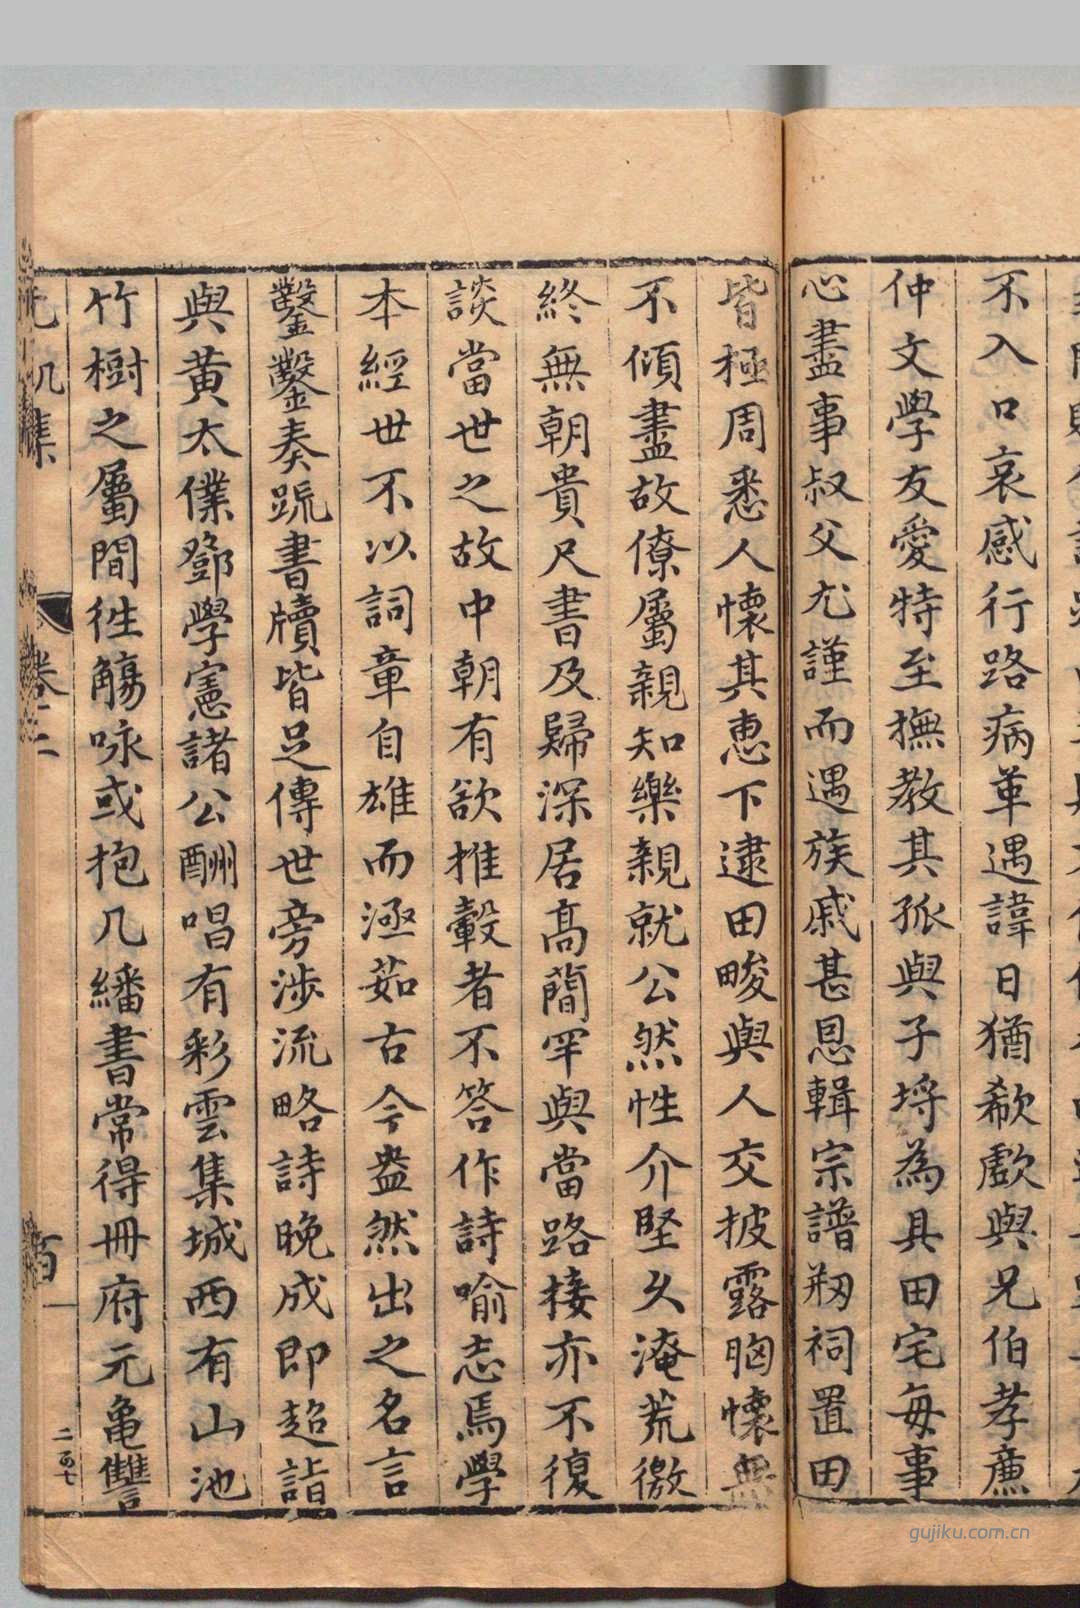 不入口哀感行路病革遇諱日猶欷歔與兄伯孝廉
仲文學友愛特至撫教其孤與子埒為具田宅毎事
心盡事叔父尤謹而遇族戚甚恩輯宗譜剏祠置田
皆極周悉人懷其惠下逮田畯與人交披露胸懷無
不傾盡故僚屬親知樂親就公然性介堅久淹荒徼
終無朝貴尺書及歸深居高蕳罕與當路接亦不復
談當世之故中朝有欲推轂者不答作詩喻志焉學
本經世不以詞章自雄而涵茹古今盎然出之名言
鑿鑿奏䟽書牘皆足傳世旁涉流略詩晚成即超詣
與黃太僕鄧學憲諸公酬唱有彩雲集城西有山池
竹樹之屬間徃觴咏或抱几繙書常得冊府元亀讐
卷二
gujiku.com.cn